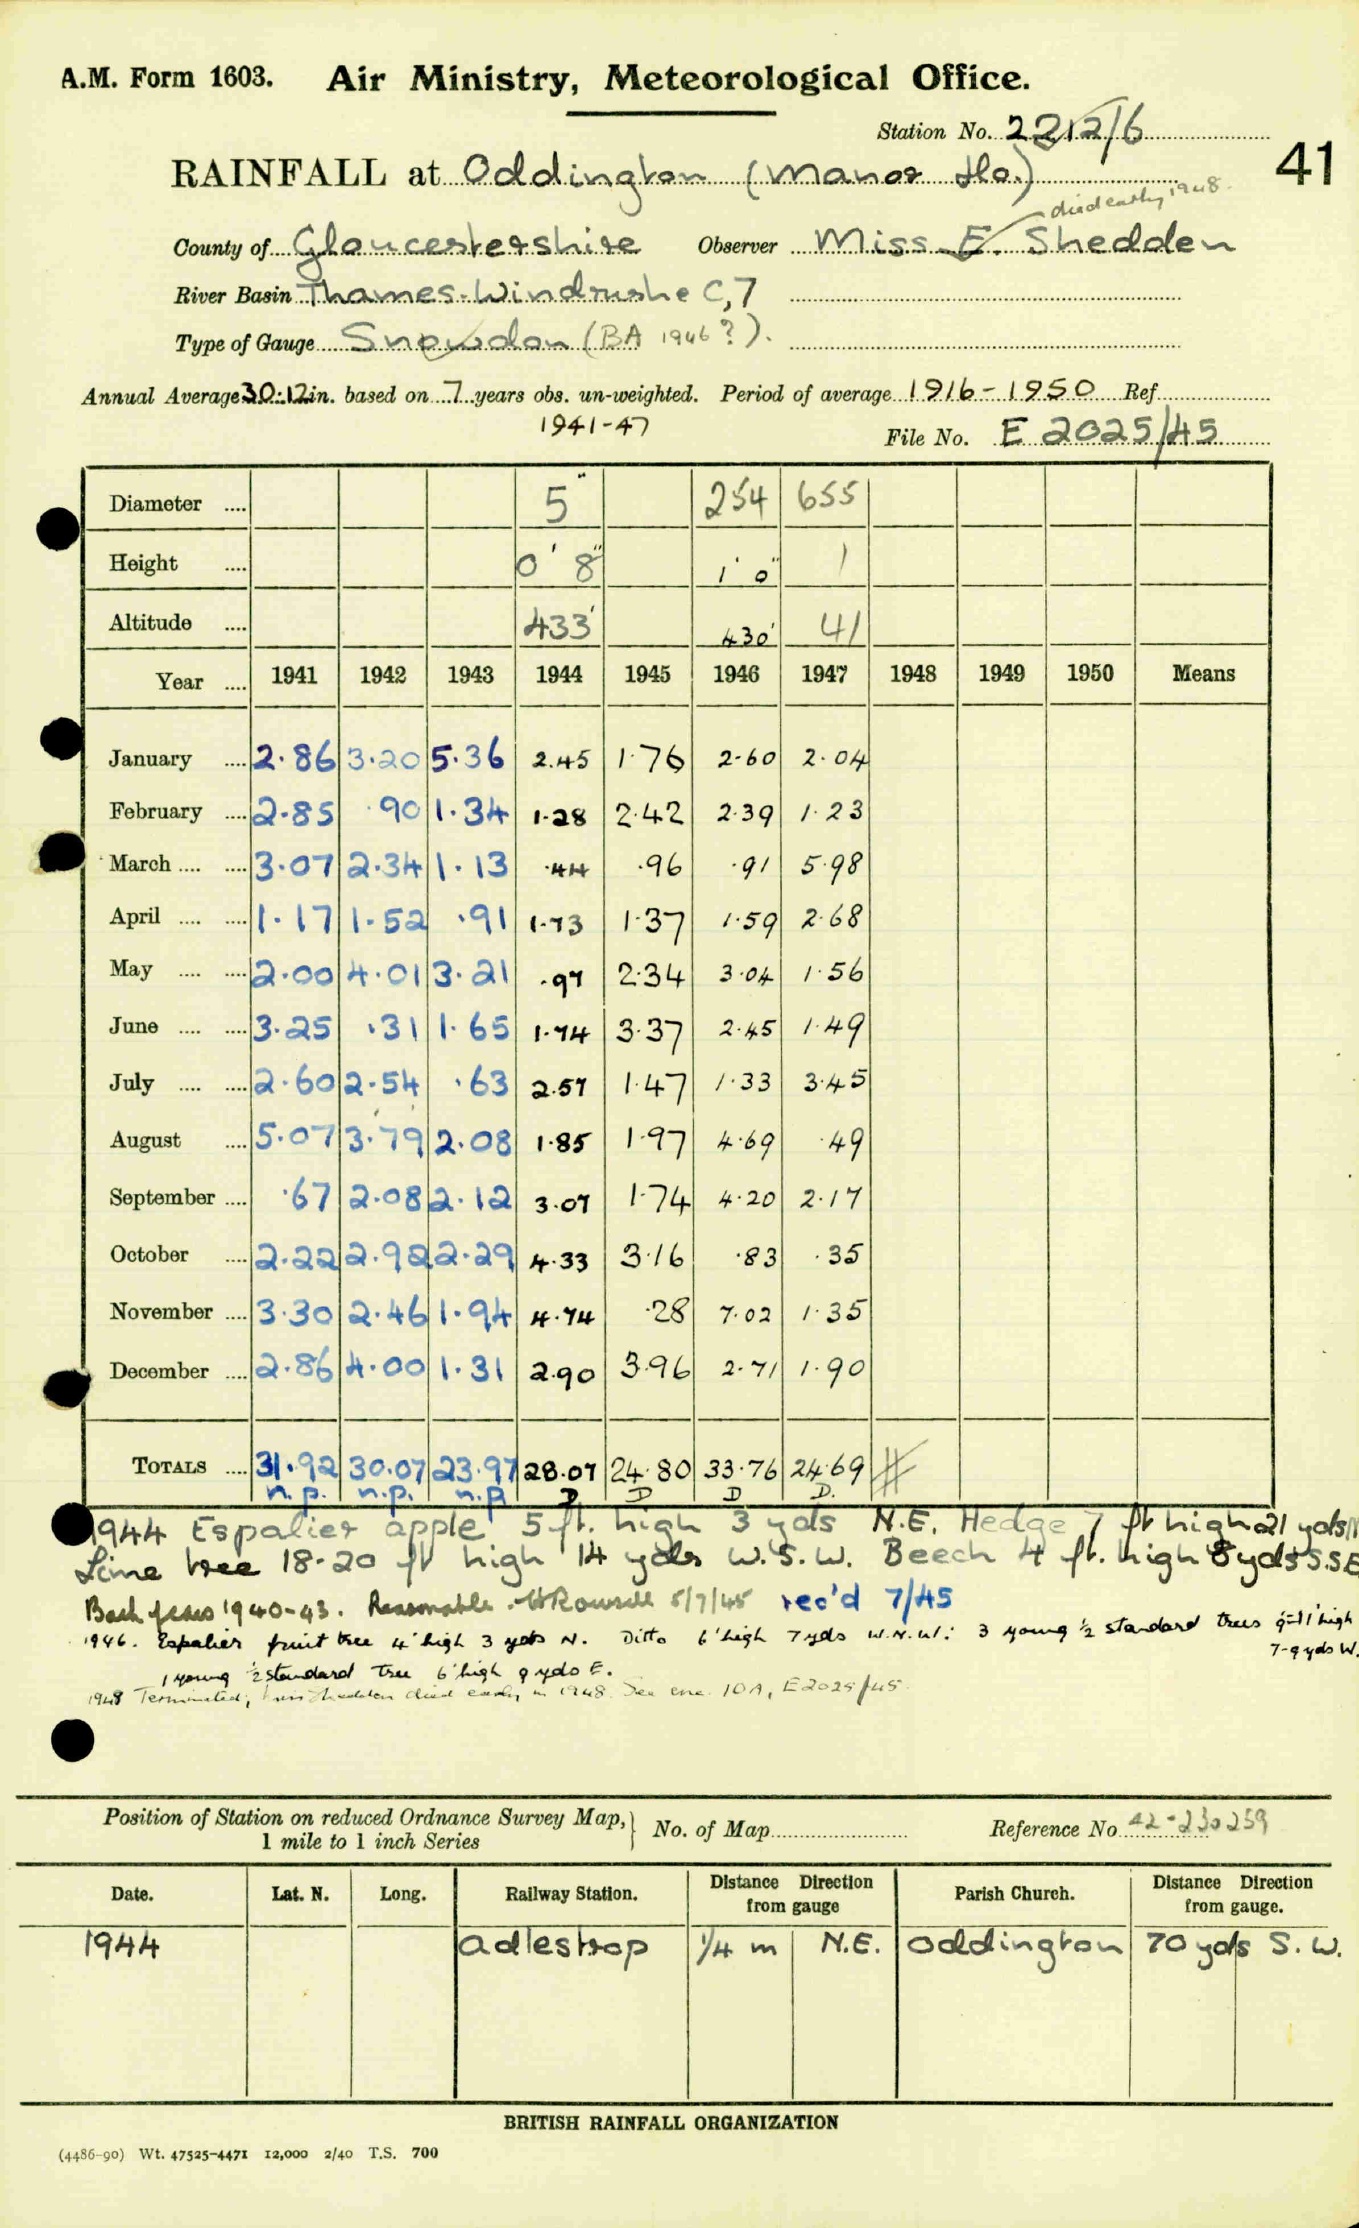 A.M. Form 1603. Air Ministry, Meteorological Office.
Station No. 2212/6
41
RAINFALL at Oddington (Manor Ho.)
died early 1948.
County of Gloucestershire Observer Miss E. Shedden
River Basin Thames-Windrush C,7
Type of Gauge Snowdon (BA 1946?).
Annual Average 30.12 in. based on 7 years obs. un-weighted. Period of average 1916-1950 Ref
1941-47
File No. E 2025/45
Diameter .... 5" 254 655
Height .... 0' 8" 1' 0" 1
Altitude .... 433' 430' 41
Year .... 1941 1942 1943 1944 1945 1946 1947 1948 1949 1950 Means
January .... 2.86 3.20 5.36 2.45 1.76 2.60 2.04
February .... 2.85 .90 1.34 1.28 2.42 2.39 1.23
March .... .... 3.07 2.34 1.13 .44 .96 .91 5.98
April .... .... 1.17 1.52 .91 1.73 1.37 1.59 2.68
May .... .... 2.00 4.01 3.21 .97 2.34 3.04 1.56
June .... .... 3.25 .31 1.65 1.74 3.37 2.45 1.49
July .... .... 2.60 2.54 .63 2.57 1.47 1.33 3.45
August .... 5.07 3.79 2.08 1.85 1.97 4.69 .49
September .... .67 2.08 2.12 3.07 1.74 4.20 2.17
October .... 2.22 2.92 2.29 4.33 3.16 .83 .35
November .... 3.30 2.46 1.94 4.74 .28 7.02 1.35
December .... 2.86 4.00 1.31 2.90 3.96 2.71 1.90
TOTALS .... 31.92 30.07 23.97 28.07 24.80 33.76 24.69
n.p. n.p. n.p D D D D.
1944 Espalier apple 5 ft. high 3 yds N.E. Hedge 7 ft high 21 yds N
Lime tree 18-20 ft high 14 yds W.S.W. Beech 4 ft. high 8 yds S.S.E
Back years 1940-43. Reasonable. 5/7/45 rec'd 7/45
1946. Espalier fruit tree 4' high 3 yds N. Ditto 6' high 7 yds W.N.W.: 3 young ½ standard trees 9-11' high
7-9 yds W.
1 young ½ standard tree 6' high 9 yds E.
1948 Terminated, Miss Shedden died early in 1948. See enc. 10A, E2025/45.
Position of Station on reduced Ordnance Survey Map, 1 mile to 1 inch Series No. of Map Reference No 42-230259
Date. Lat. N. Long. Railway Station. Distance Direction from gauge Parish Church. Distance Direction from gauge.
1944 Adlestrop ¼ m N.E. Oddington 70 yds S.W.
BRITISH RAINFALL ORGANIZATION
(4486-90) Wt. 47525-4471 12,000 2/40 T.S. 700